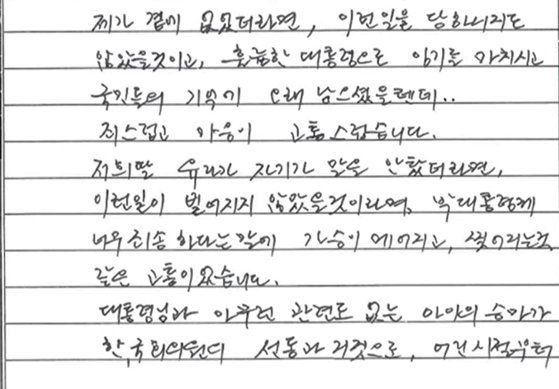 제가 곁에 없었더라면, 이런일을 당하시지도
않았을것이고, 훌륭한 대통령으로 임기를 마치시고
국민들의 기억에 오래 남으셨을텐데..
죄스럽고 마음이 고통스럽습니다.
저희딸 유라가 자기가 말을 안탔더라면,
이런일이 벌어지지 않았을것이라며, 박대통령께
너무죄송하다는말에 가슴이 메어지고, 찢어지는것
같은 고통이 있습니다.
대통령님과 아무런 관련도 없는 아이의 승마가
선동과 거짓으로, 어린시절부터